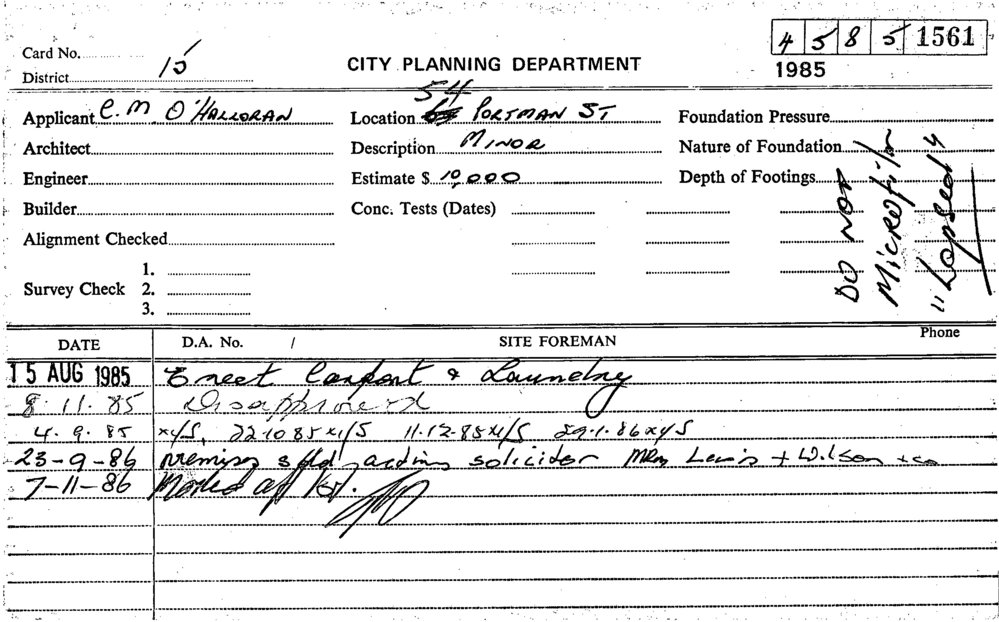 4 5 8 5 1561
Card No.
1985
District 15
CITY PLANNING DEPARTMENT
Applicant C. M O'HALLORAN
Location 54 PORTMAN ST
Foundation Pressure
Architect
Description MINOR
Nature of Foundation
Engineer
Estimate $ 10,000
Depth of Footings
Builder
Conc. Tests (Dates)
Alignment Checked
Survey Check
1.
2.
3.
DO NOT
Microfilm
"Lapsed"
DATE D.A. No. / SITE FOREMAN Phone
15 AUG 1985 Erect Carport & Laundry
8.11.85 Disapproved
4.9.85 x4/S, 22.10.85 11.12.85 29.1.86
23-9-86 premises sold acting solicitor Lewis + Wilson + co
7-11-86